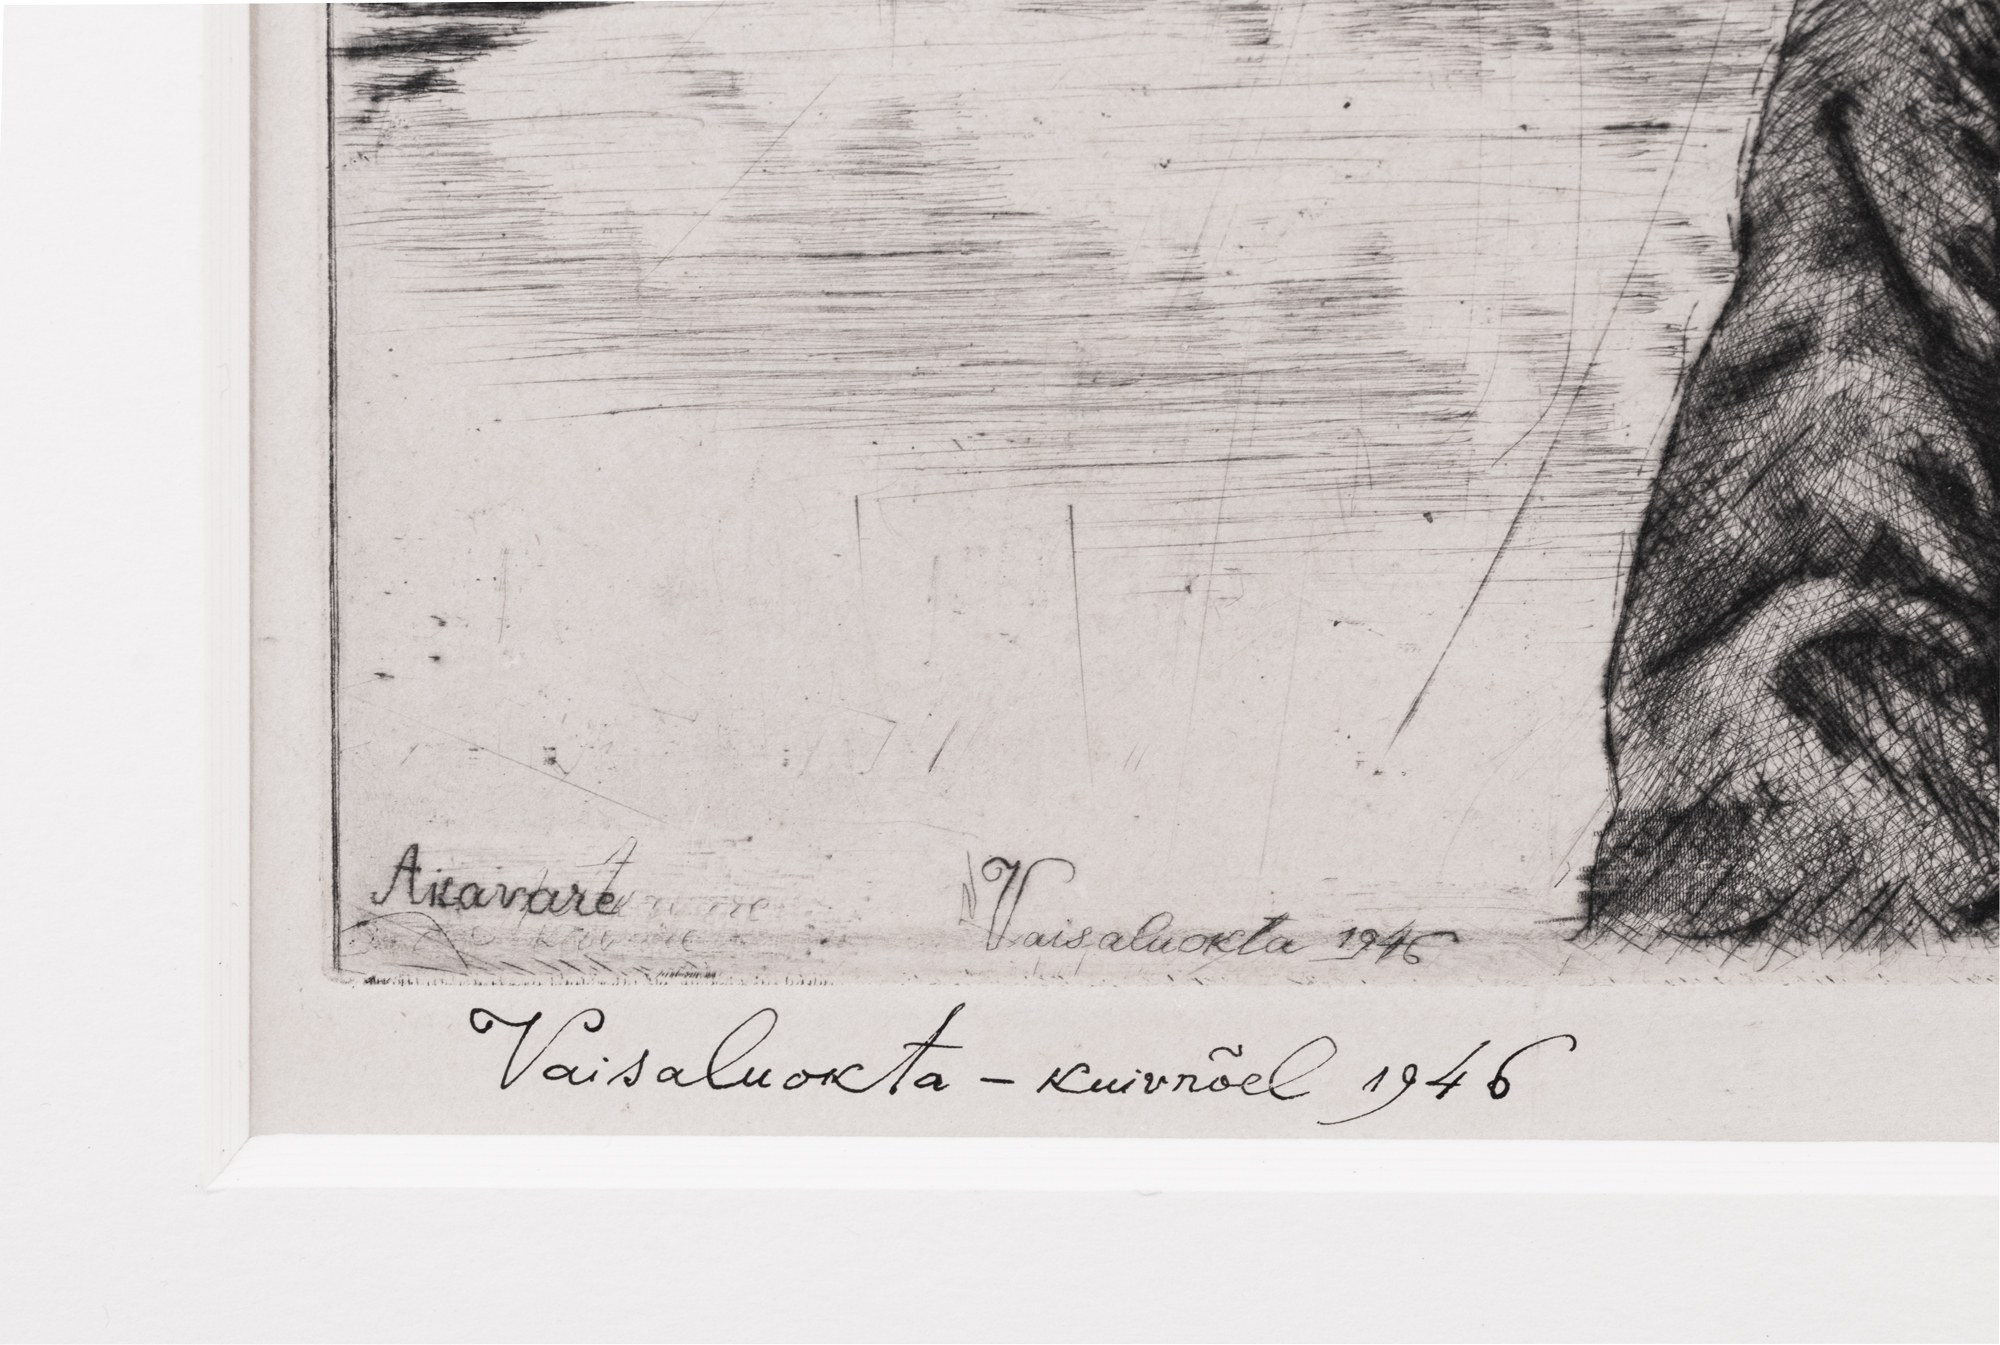 Akavare
Vaisaluokta 1946
Vaisaluokta – kuivnõel 1946